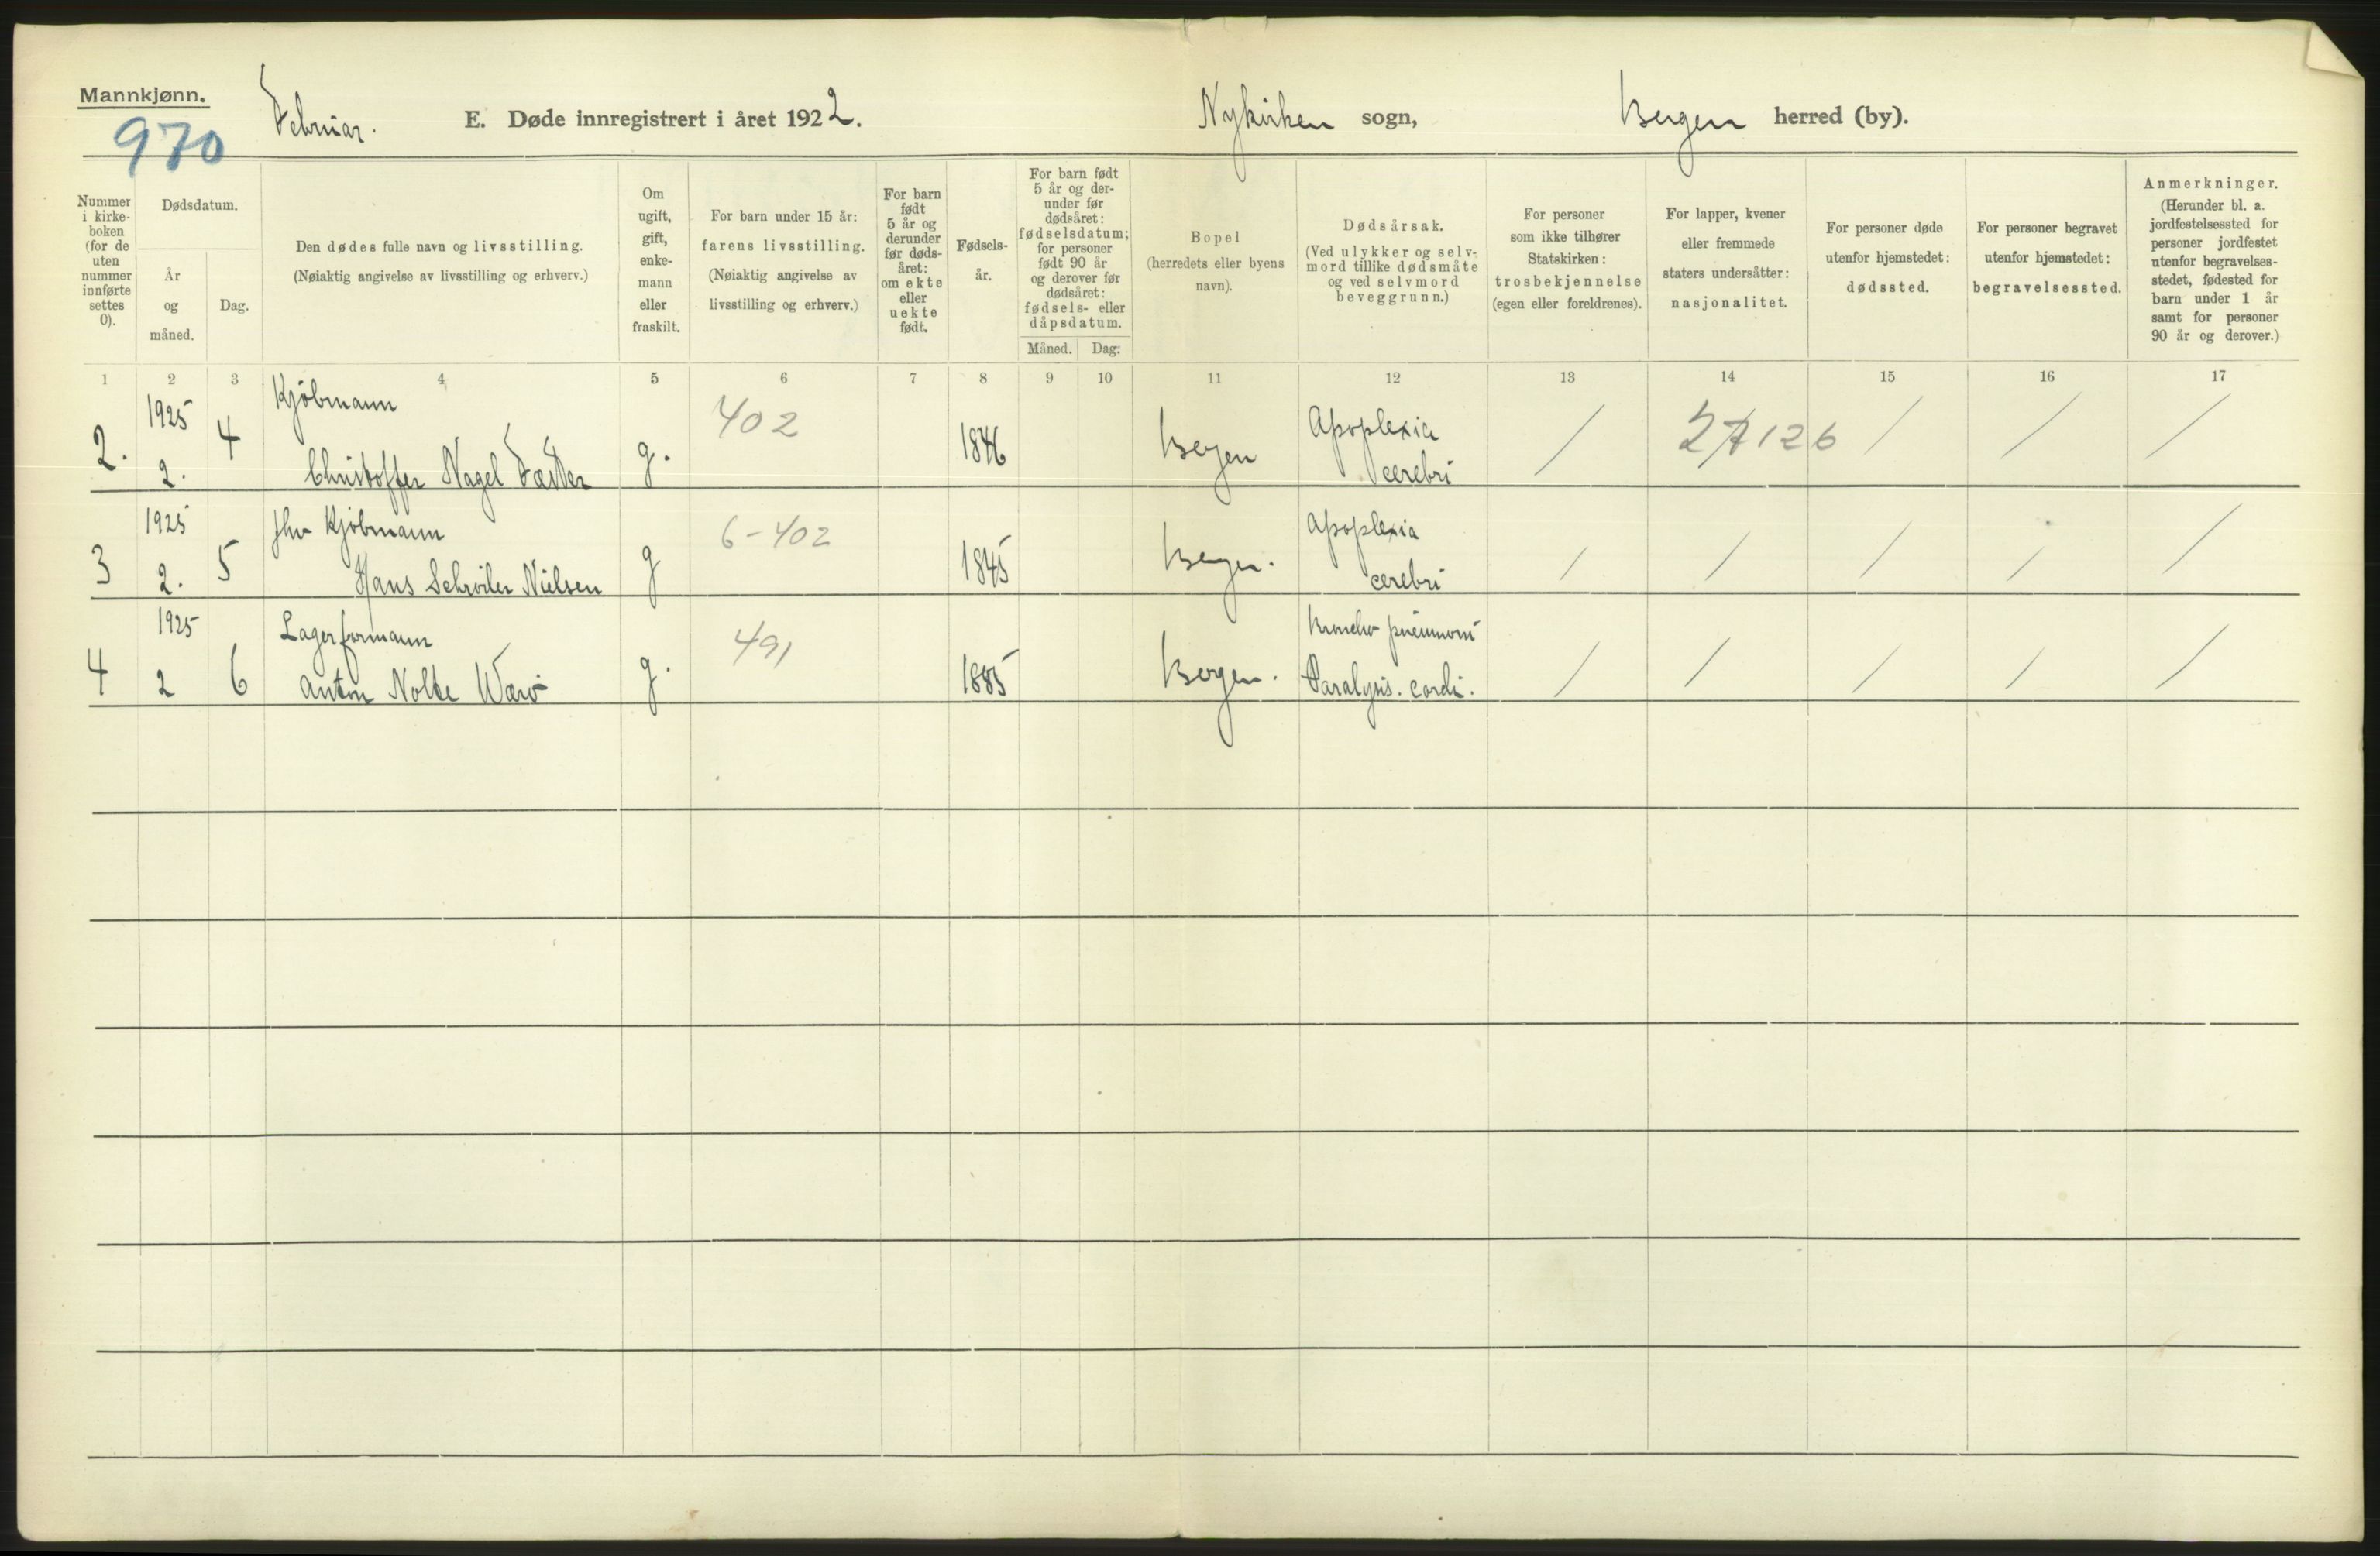 Mannkjønn.
970
Februar.
E. Døde innregistrert i året 1922.
Nykirken sogn,
Bergen herred (by).
Nummer
i kirke-
boken
(for de
uten
nummer
innførte
settes
0).
Dødsdatum.
År
og
måned.
Dag.
Den dødes fulle navn og livsstilling.
(Nøiaktig angivelse av livsstilling og erhverv.)
Om
ugift,
gift,
enke-
mann
eller
fraskilt.
For barn under 15 år:
farens livsstilling.
(Nøiaktig angivelse av
livsstilling og erhverv.)
For barn
født
5 år og
derunder
før døds-
året:
om ekte
eller
uekte
født.
Fødsels-
år.
For barn født
5 år og der-
under før
dødsåret:
fødselsdatum;
for personer
født 90 år
og derover før
dødsåret:
fødsels- eller
dåpsdatum.
Måned.
Dag.
Bopel
(herredets eller byens
navn).
Dødsårsak.
(Ved ulykker og selv-
mord tillike dødsmåte
og ved selvmord
beveggrunn.)
For personer
som ikke tilhører
Statskirken:
trosbekjennelse
(egen eller foreldrenes).
For lapper, kvener
eller fremmede
staters undersåtter:
nasjonalitet.
For personer døde
utenfor hjemstedet:
dødssted.
For personer begravet
utenfor hjemstedet:
begravelsessted.
Anmerkninger.
(Herunder bl. a.
jordfestelsessted for
personer jordfestet
utenfor begravelses-
stedet, fødested for
barn under 1 år
samt for personer
90 år og derover.)
1 2 3 4 5 6 7 8 9 10 11 12 13 14 15 16 17
2.
1925
2.
4
Kjøbmann
Christoffer Nagel
g.
402
1846
Bergen
Apoplexia
cerebri
/
27126
/
/
/
3
1925
2.
5
fhv Kjøbmann
Hans Schrøder Nielsen
g
6-402
1845
Bergen.
Apoplexia
cerebri
/
/
/
/
/
4
1925
2
6
Lagerformann
Anton Nolte
g.
491
1885
Bergen.
Broncho pneumoni
Paralysis. cordi.
/
/
/
/
/